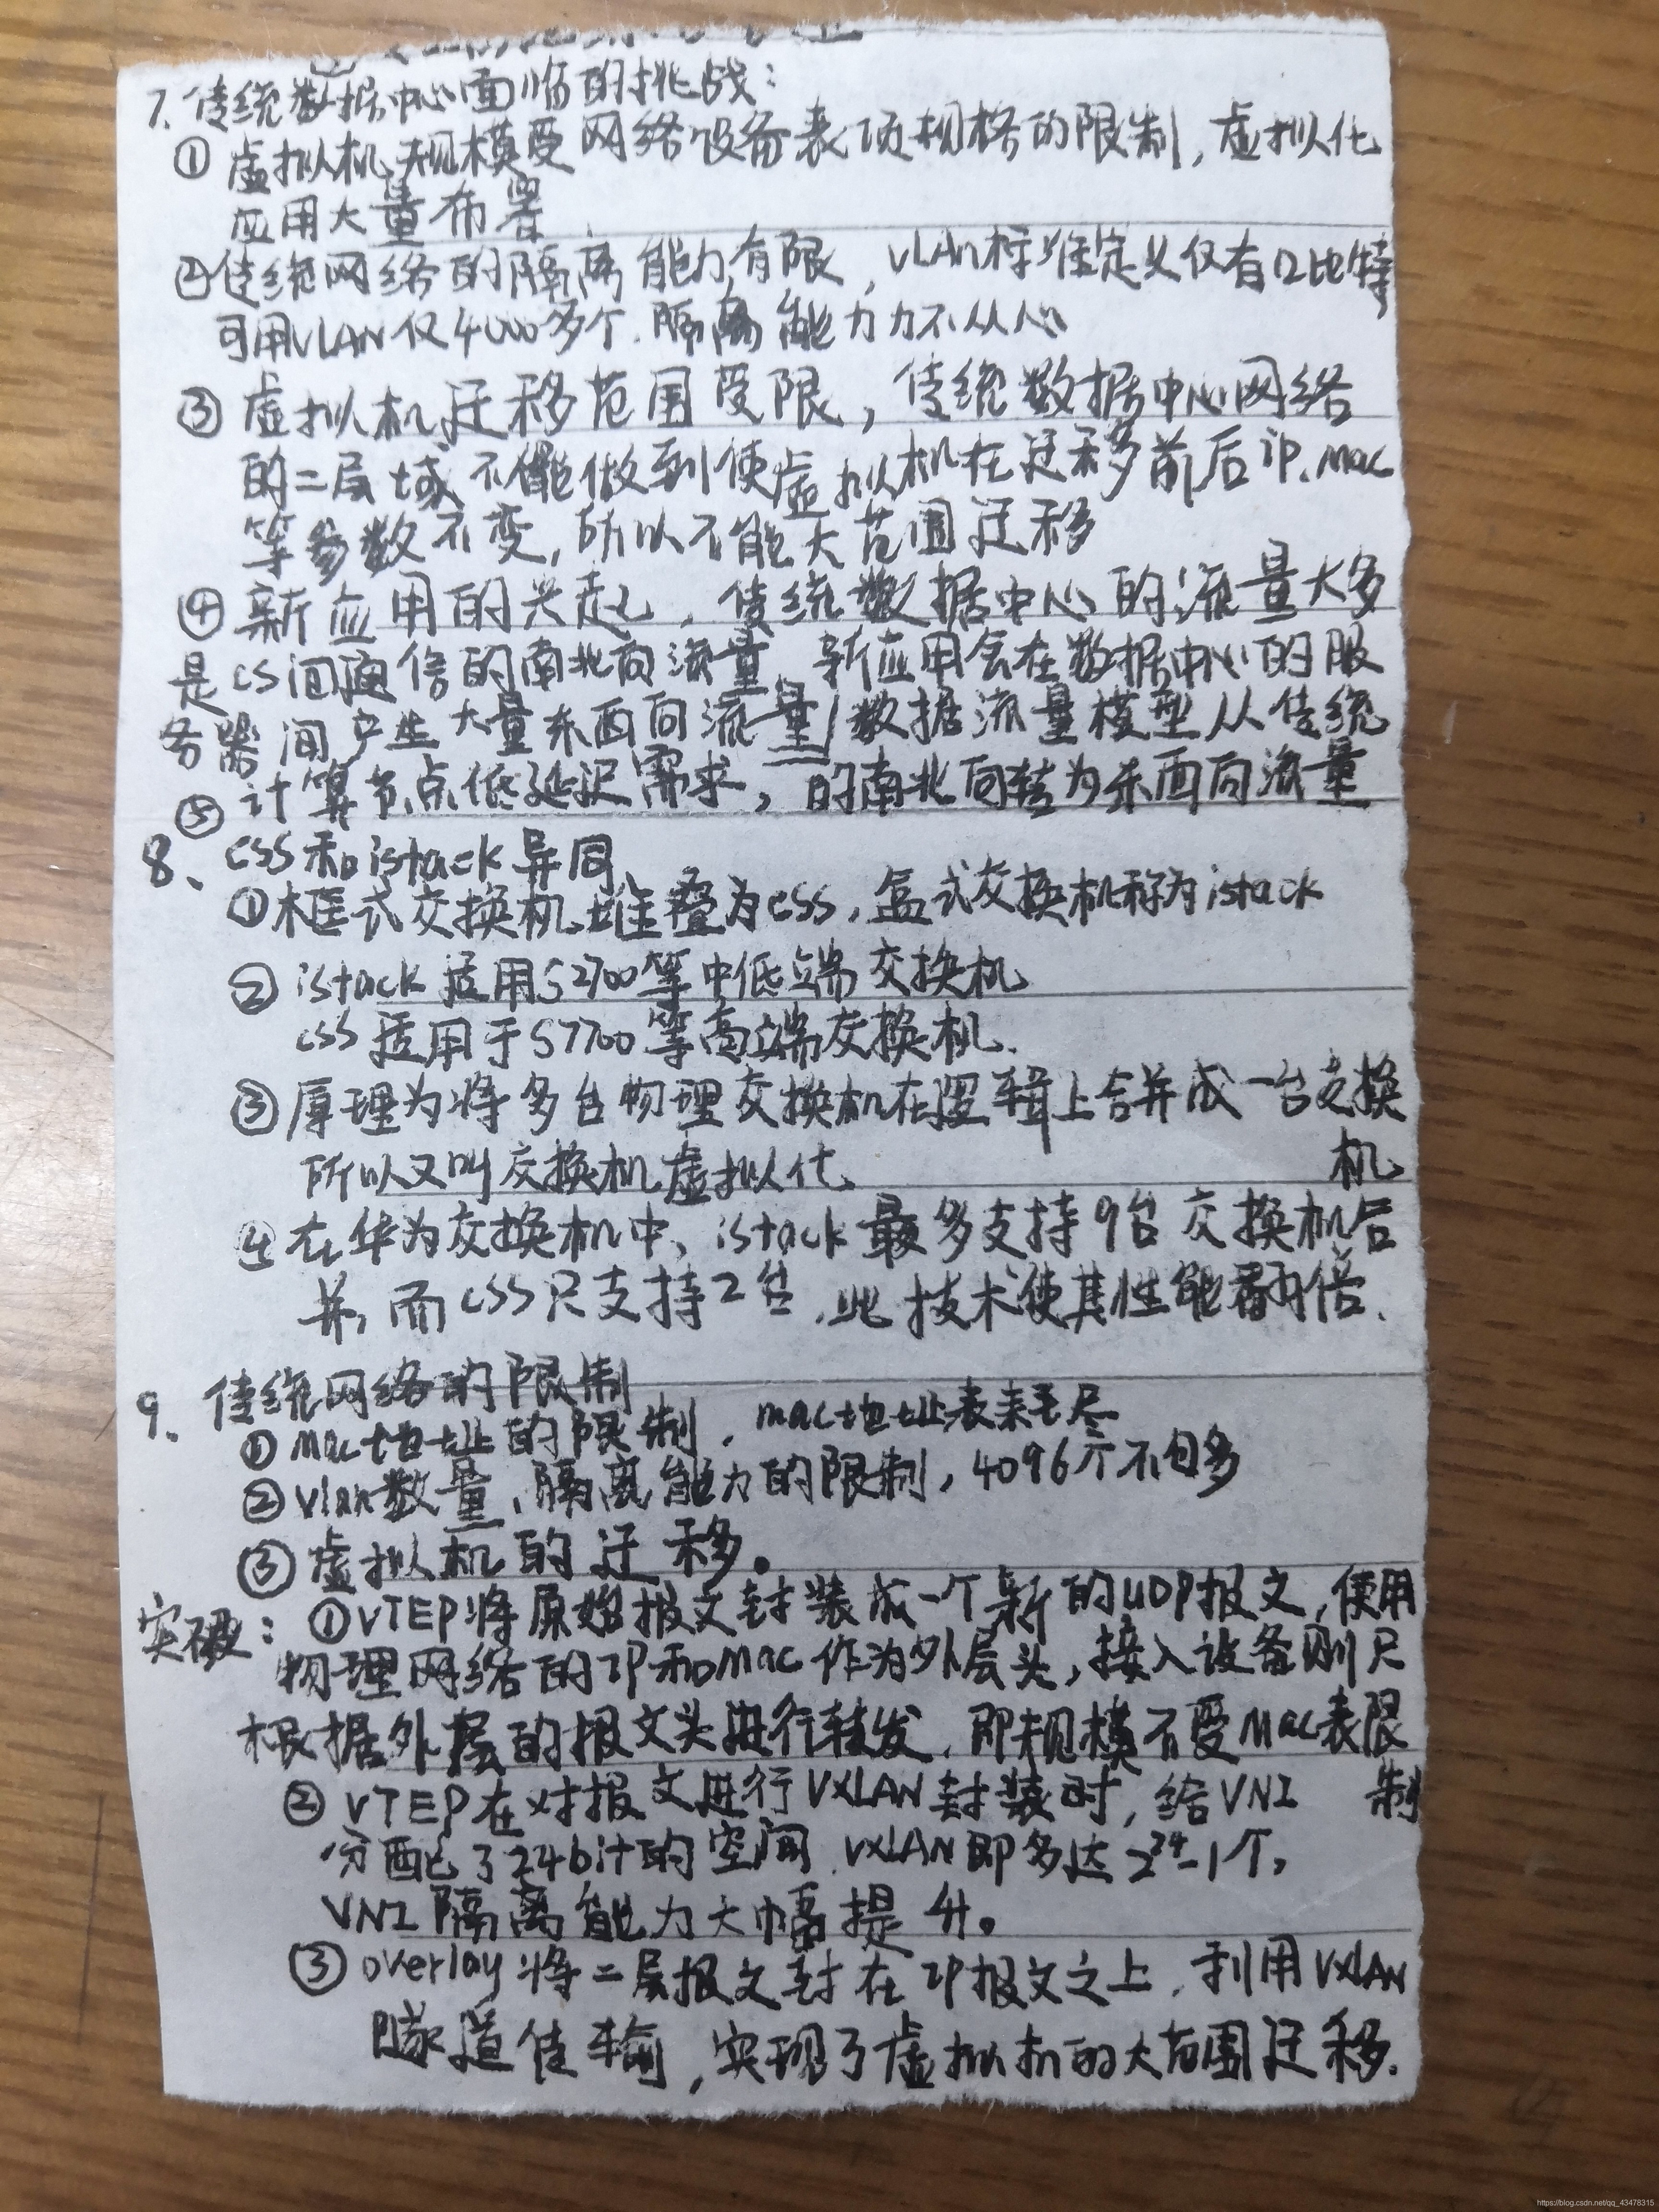 7、传统数据中心面临的挑战:
① 虚拟机规模受网络设备表项规格的限制, 虚拟化
应用大量布署
②传统网络的隔离能力有限, VLAN标准定义仅有12比特
可用VLAN仅4000多个. 隔离能力力不从心
③ 虚拟机迁移范围受限, 传统数据中心网络
的二层域不能做到使虚拟机在迁移前后ip、mac
等参数不变, 所以不能大范围迁移
④ 新应用的兴起, 传统数据中心的流量大多
是CS间通信的南北向流量, 新应用会在数据中心的服
务器间产生大量东西向流量/数据流量模型从传统
⑤ 计算节点低延迟需求, 的南北向转为东西向流量
8、CSS和istack异同、
①框式交换机堆叠为CSS, 盒式交换机称为istack
② istack适用S2700等中低端交换机
CSS适用于S7700等高端交换机.
③ 原理为将多台物理交换机在逻辑上合并成一台交换
机
所以又叫交换机虚拟化、
④ 在华为交换机中、istack最多支持9台交换机合
并, 而CSS只支持2台, 此技术使其性能翻倍.
9、传统网络的限制
① mac地址的限制, mac地址表耗尽
② vlan数量、隔离能力的限制, 4096个不包多
③ 虚拟机的迁移。
突破: ①VTEP将原始报文封装成一个新的UDP报文, 使用
物理网络的IP和mac作为外层头, 接入设备则只
根据外层的报文头进行转发, 即规模不受mac表限
制
② VTEP在对报文进行VXLAN封装时, 给VNI
分配了24bit的空间, VXLAN即多达2²⁴-1个,
VNI隔离能力大幅提升。
③ overlay将二层报文封在IP报文之上, 利用VXLAN
隧道传输, 实现了虚拟机的大范围迁移.
https://blog.csdn.net/qq_43478315